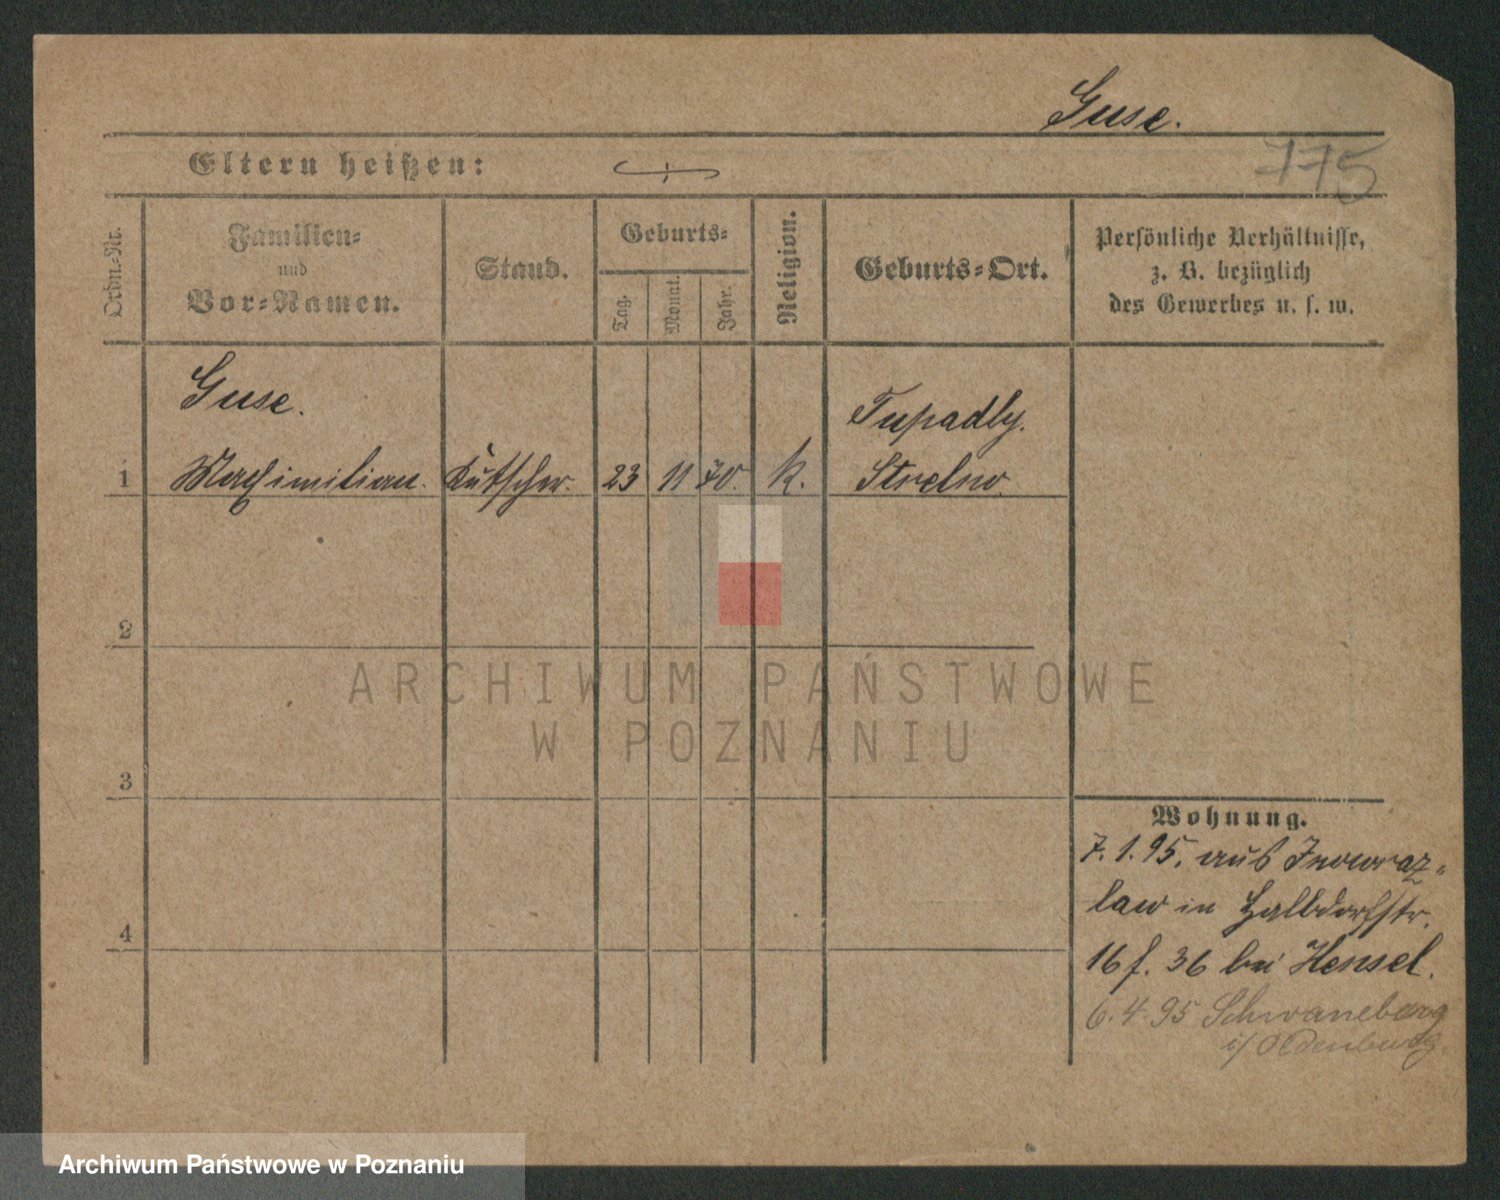 Guse.
775
Eltern heißen:
Ordn.-Nr.
Familien-
und
Vor-Namen.
Stand.
Geburts-
Tag.
Monat.
Jahr.
Religion.
Geburts-Ort.
Persönliche Verhältnisse,
z. B. bezüglich
des Gewerbes u. s. w.
Guse.
Tupadly.
1 Maximilian. Kutscher. 23 11 70. k. Strelno.
2
ARCHIWUM PAŃSTWOWE
W POZNANIU
3
Wohnung.
7. 1. 95. aus Inowraz-
law in Halbdorfstr.
4
16 f. 36 bei Hensel.
6. 4. 95 Schwaneberg
i/ Oldenburg
Archiwum Państwowe w Poznaniu